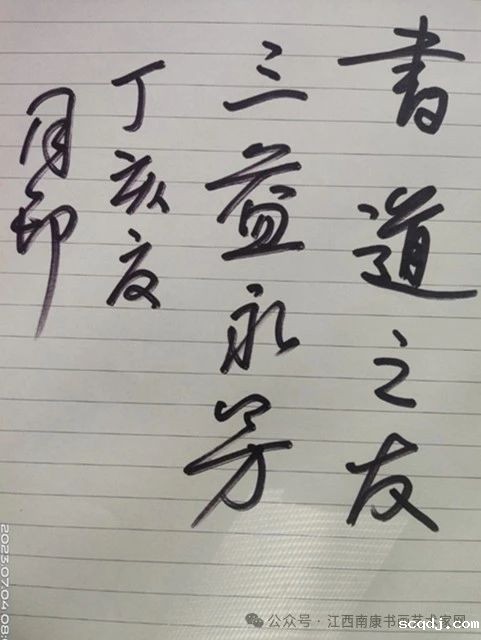 書道之友
三益永芳
丁亥夏
月印
2023.07.04 08:
公众号·江西南康书画艺术官网
scqdj.com